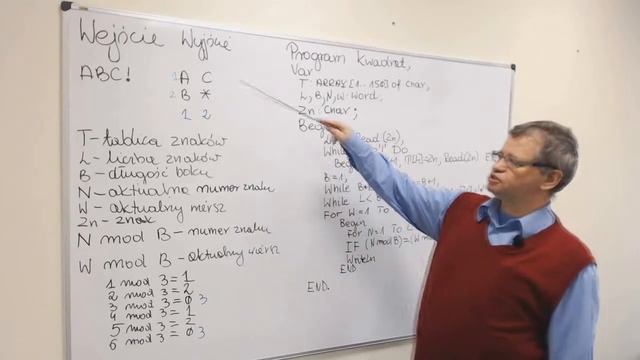 Wejście Wyjście
ABC!
1 A C
2 B *
1 2
T-tablica znaków
L-liczba znaków
B-długość boku
N-aktualne numer znaku
W-aktualny wiersz
Zn-znak
N mod B-numer znaku
W mod B-aktualny wiersz
1 mod 3=1
2 mod 3=2
3 mod 3=0 3
4 mod 3=1
5 mod 3=2
6 mod 3=0 3
Program Kwadrat,
Var
T: ARRAY[1..150] of char,
L, B, N, W: Word,
Zn: Char;
Beg
Read(Zn),
While Do
Beg
B=1,
While
While L<
For W=1 To
Begin
For N=1 To L
IF (N mod B)=(W m
Writeln
END
END.